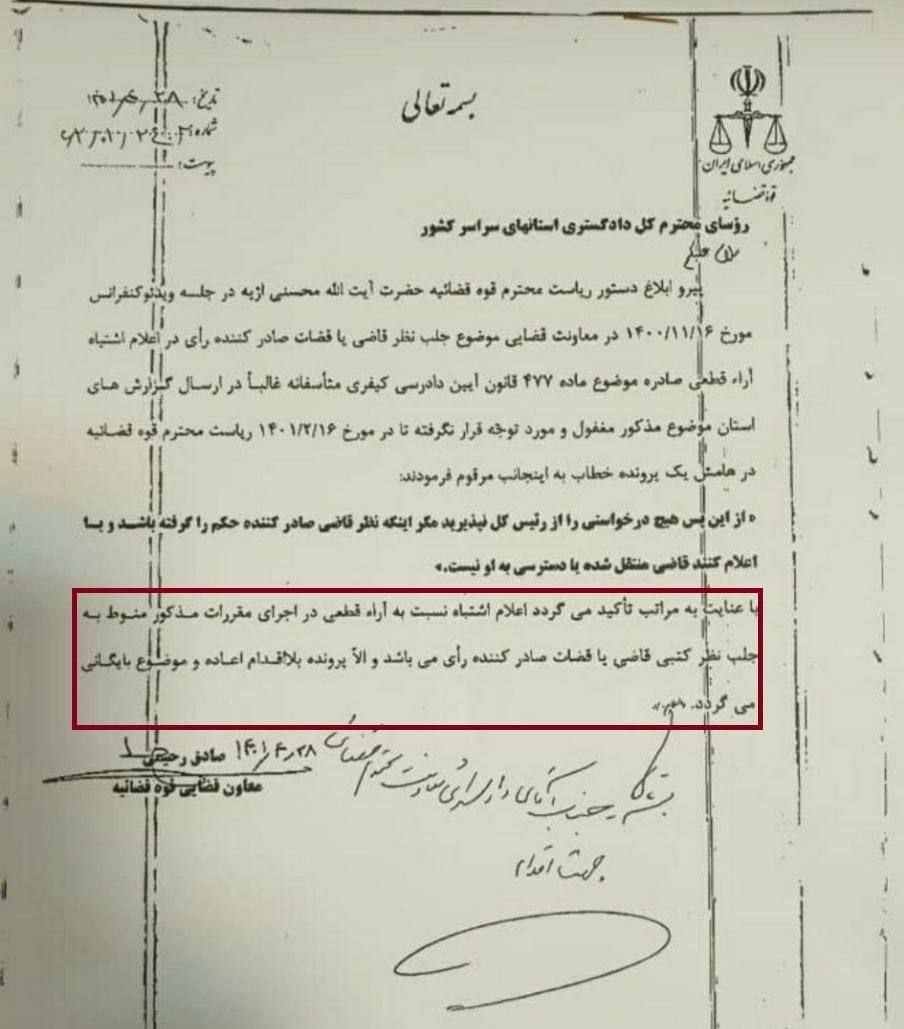 بسمه تعالی
جمهوری اسلامی ایران
قوه قضائیه
تاریخ: ۱۴۰۱/۴/۲۸
شماره:
پیوست:
رؤسای محترم کل دادگستری استانهای سراسر کشور
سلام علیکم
پیرو ابلاغ دستور ریاست محترم قوه قضائیه حضرت آیت الله محسنی اژیه در جلسه ویدئوکنفرانس
مورخ ۱۴۰۰/۱۱/۱۶ در معاونت قضایی موضوع جلب نظر قاضی یا قضات صادر کننده رأی در اعلام اشتباه
آراء قطعی صادره موضوع ماده ۴۷۷ قانون آیین دادرسی کیفری متأسفانه غالباً در ارسال گزارش های
استان موضوع مذکور مغفول و مورد توجّه قرار نگرفته تا در مورخ ۱۴۰۱/۲/۱۶ ریاست محترم قوه قضائیه
در هامش یک پرونده خطاب به اینجانب مرقوم فرمودند:
« از این پس هیچ درخواستی را از رئیس کل نپذیرید مگر اینکه نظر قاضی صادر کننده حکم را گرفته باشد و یا
اعلام کنند قاضی منتقل شده یا دسترسی به او نیست.»
با عنایت به مراتب تأکید می گردد اعلام اشتباه نسبت به آراء قطعی در اجرای مقررات مذکور منوط به
جلب نظر کتبی قاضی یا قضات صادر کننده رأی می باشد و الاّ پرونده بلااقدام اعاده و موضوع بایگانی
می گردد.
صادق رحیمی ۱۴۰۱/۴/۲۸
معاون قضایی قوه قضائیه
جناب آقای
جهت اقدام